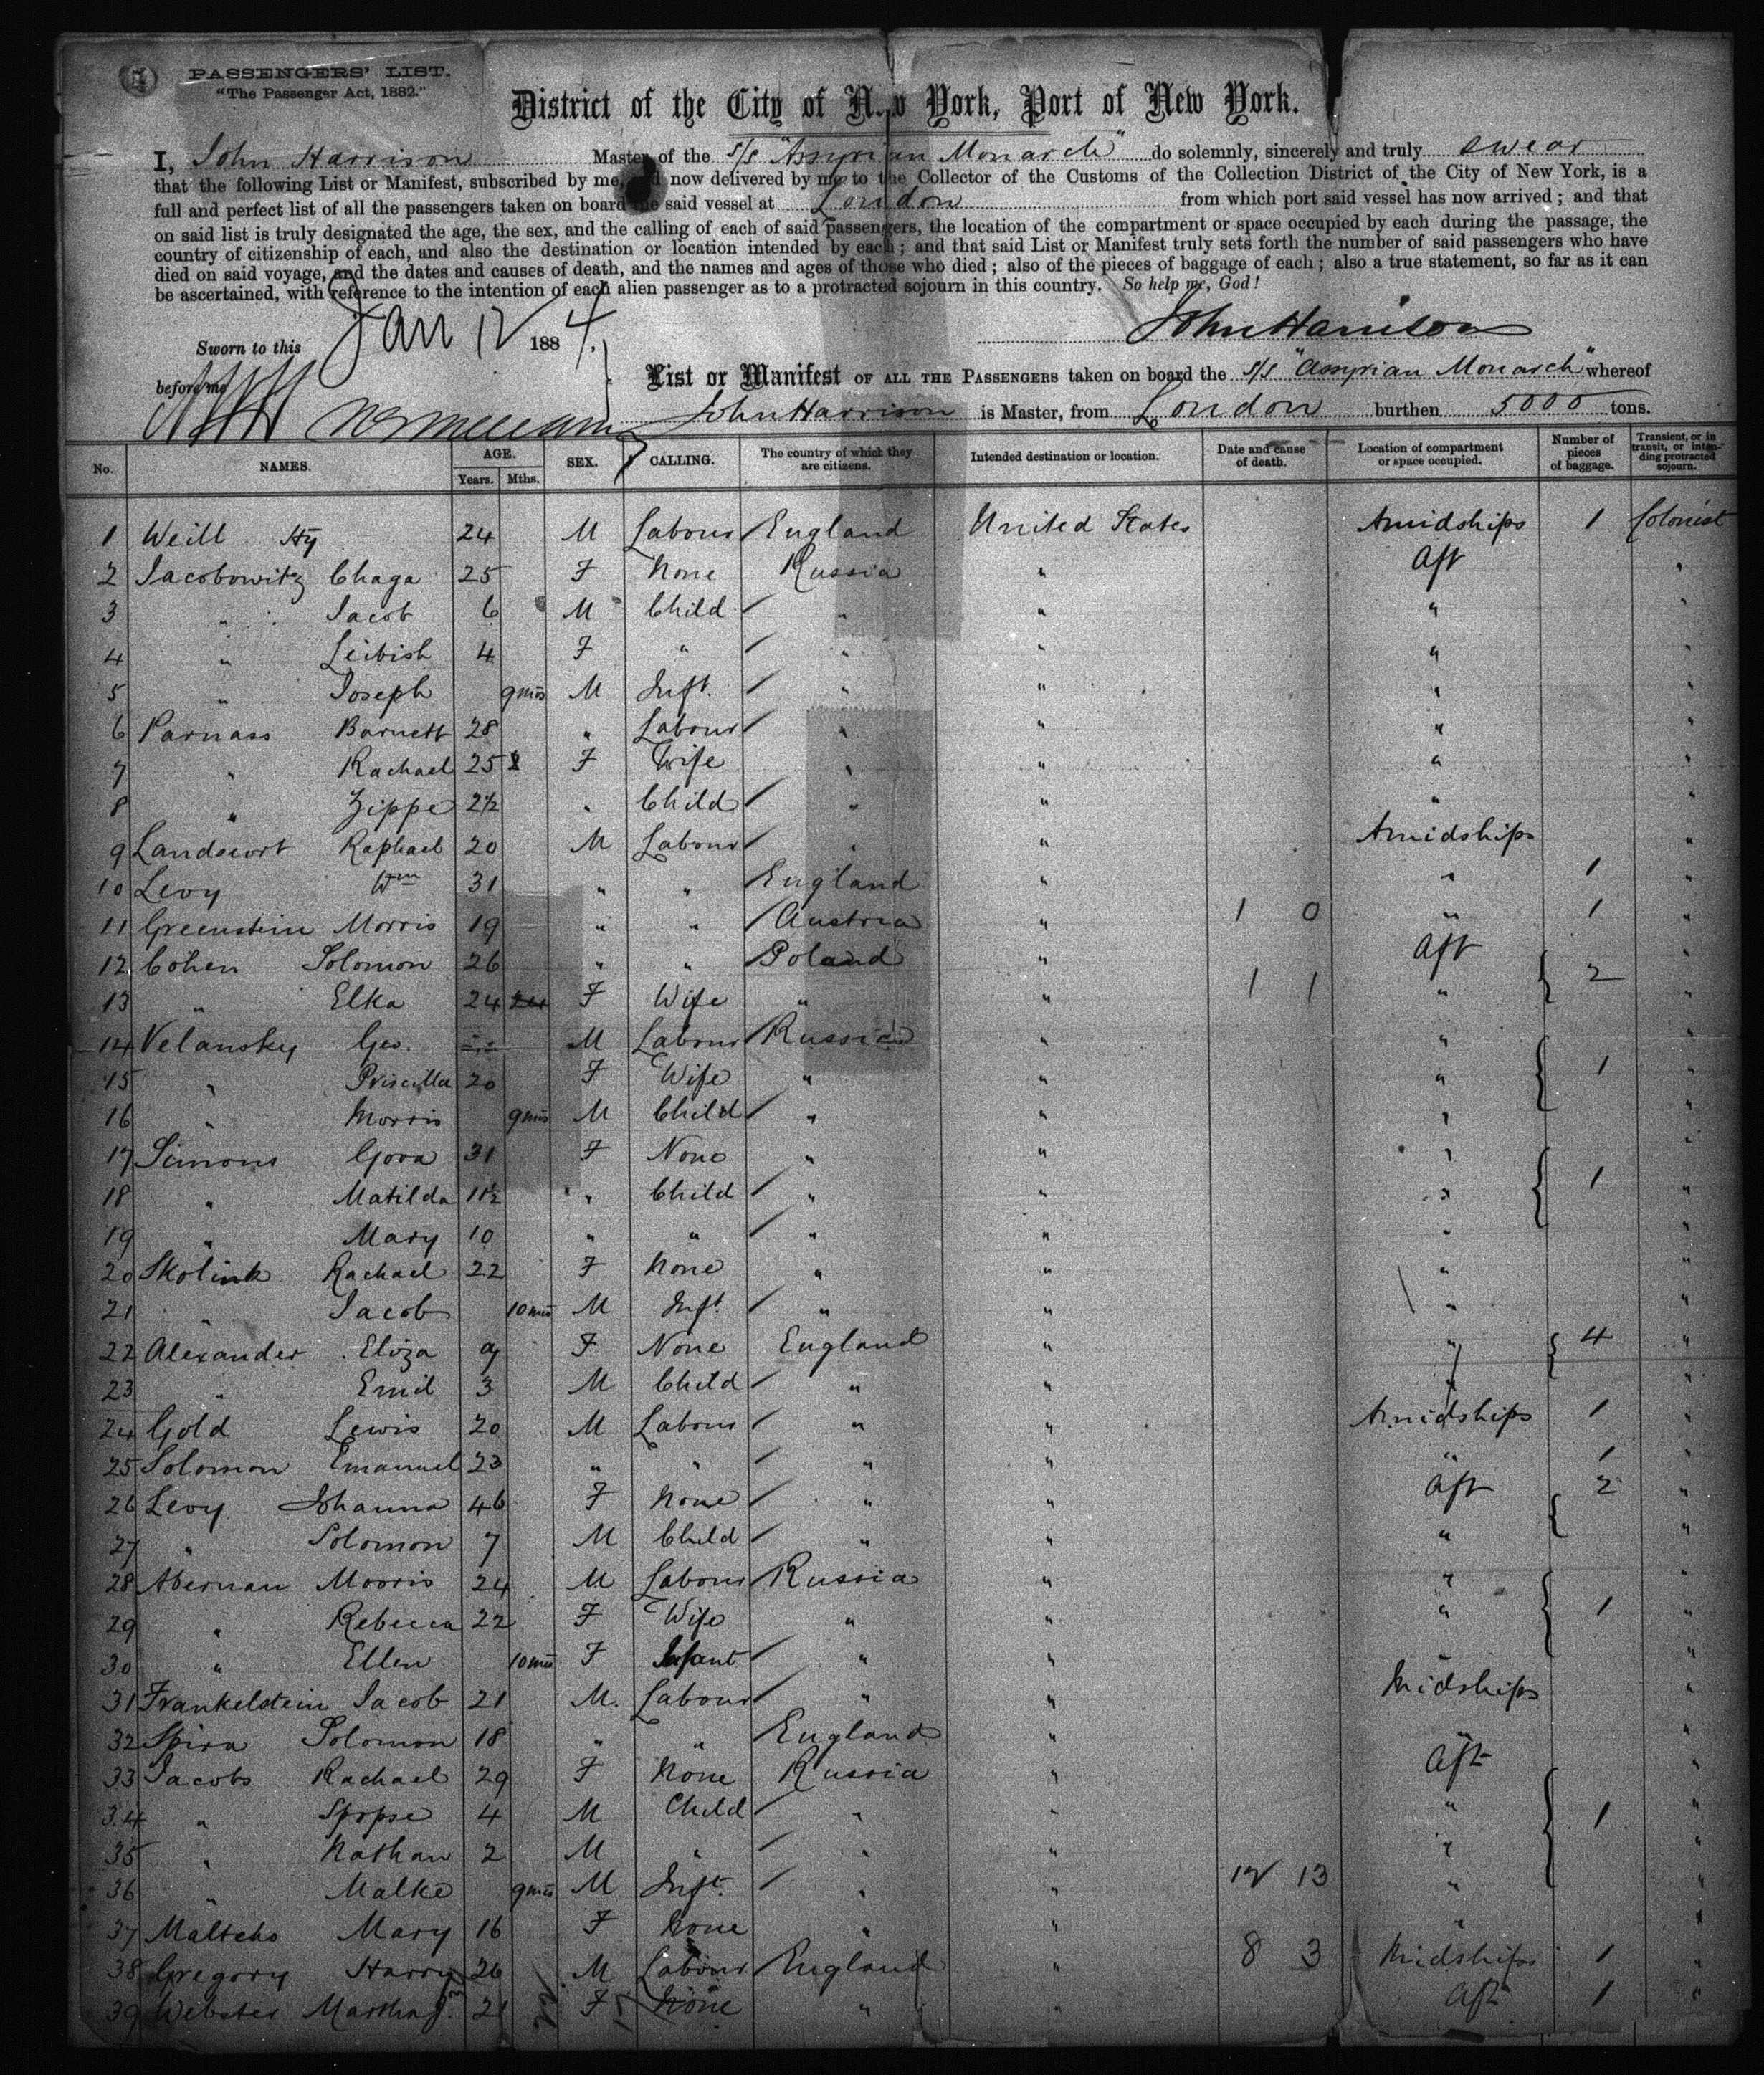 PASSENGERS' LIST.
"The Passenger Act, 1882."
District of the City of New York, Port of New York.
I, John Harrison Master of the s/s "Assyrian Monarch" do solemnly, sincerely and truly swear
that the following List or Manifest, subscribed by me, and now delivered by me to the Collector of the Customs of the Collection District of the City of New York, is a
full and perfect list of all the passengers taken on board the said vessel at London from which port said vessel has now arrived; and that
on said list is truly designated the age, the sex, and the calling of each of said passengers, the location of the compartment or space occupied by each during the passage, the
country of citizenship of each, and also the destination or location intended by each; and that said List or Manifest truly sets forth the number of said passengers who have
died on said voyage, and the dates and causes of death, and the names and ages of those who died; also of the pieces of baggage of each; also a true statement, so far as it can
be ascertained, with reference to the intention of each alien passenger as to a protracted sojourn in this country. So help me, God!
John Harrison
Sworn to this Jan 12 1884.
before me
List or Manifest OF ALL THE PASSENGERS taken on board the s/s "Assyrian Monarch" whereof
John Harrison is Master, from London burthen 5000 tons.
No. NAMES. AGE. Years. Mths. SEX. CALLING. The country of which they are citizens. Intended destination or location. Date and cause of death. Location of compartment or space occupied. Number of pieces of baggage. Transient, or in transit, or intending protracted sojourn.
1 Weill Hy 24 M Labour England United States Amidships 1 Colonist
2 Jacobowitz Chaga 25 F None Russia " Aft "
3 " Jacob 6 M Child " " " "
4 " Leibish 4 F " " " " "
5 " Joseph 9mos M Inft. " " " "
6 Parnass Barnett 28 " Labour " " " "
7 " Rachael 25 F Wife " " " "
8 " Zippe 2½ " Child " " " "
9 Landswort Raphael 20 M Labour " " Amidships "
10 Levy Wm 31 " " England " " 1 "
11 Greenstein Morris 19 " " Austria " 1 0 " 1 "
12 Cohen Solomon 26 " " Poland " Aft 2 "
13 " Elka 24 F Wife " " 1 1 " "
14 Velansky Geo. M Labour Russia " " "
15 " Priscilla 20 F Wife " " " 1 "
16 " Morris 9mos M Child " " " "
17 Simons Gova 31 F None " " " "
18 " Matilda 11½ " Child " " " 1 "
19 " Mary 10 " " " " " "
20 Skolink Rachael 22 F None " " " "
21 " Jacob 10mos M Inft. " " " "
22 Alexander Eliza 9 F None England " " 4 "
23 " Emil 3 M Child " " " "
24 Gold Lewis 20 M Labour " " Amidships 1 "
25 Solomon Emanuel 23 " " " " " 1 "
26 Levy Johanna 46 F None " " Aft 2 "
27 " Solomon 7 M Child " " " "
28 Abernan Morris 24 M Labour Russia " " "
29 " Rebecca 22 F Wife " " " 1 "
30 " Ellen 10mos F Infant " " " "
31 Frankelstein Jacob 21 M. Labour " " Midships "
32 Spira Solomon 18 " " England " " "
33 Jacobs Rachael 29 F None Russia " Aft "
34 " 4 M Child " " " 1 "
35 " Nathan 2 M " " " " "
36 " Malke 9mos M Inft. " " 12 13 " "
37 Mary 16 F None " " " "
38 Gregory Harry 26 M Labour England " 8 3 Midships 1 "
39 Webster Martha J. 21 F None " " Aft 1 "